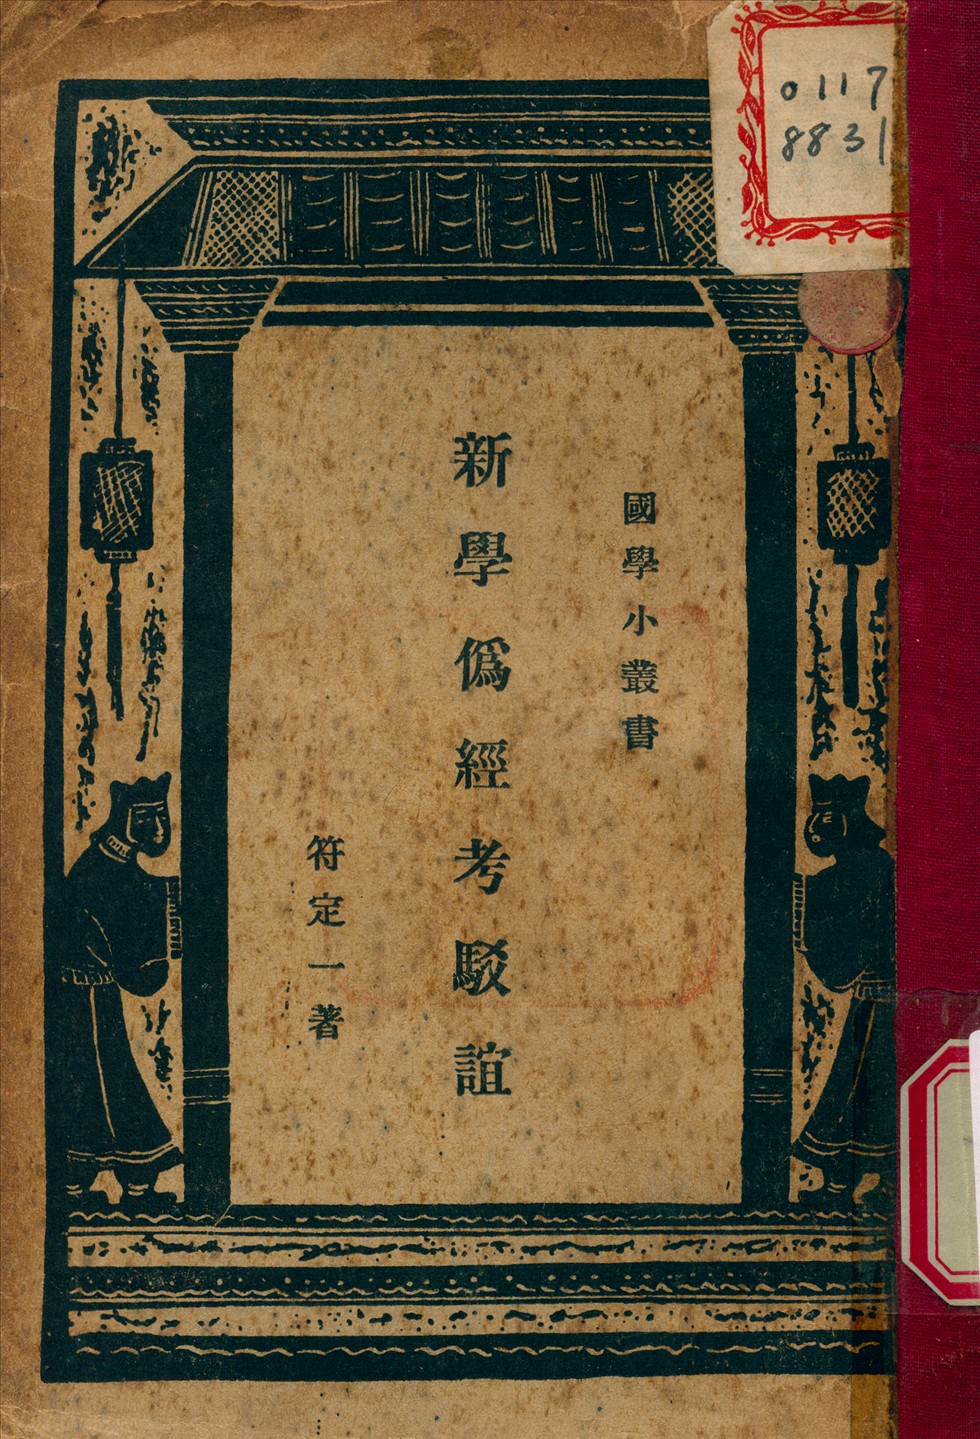 0117
8831
國學小叢書
新學僞經考駁誼
符定一著